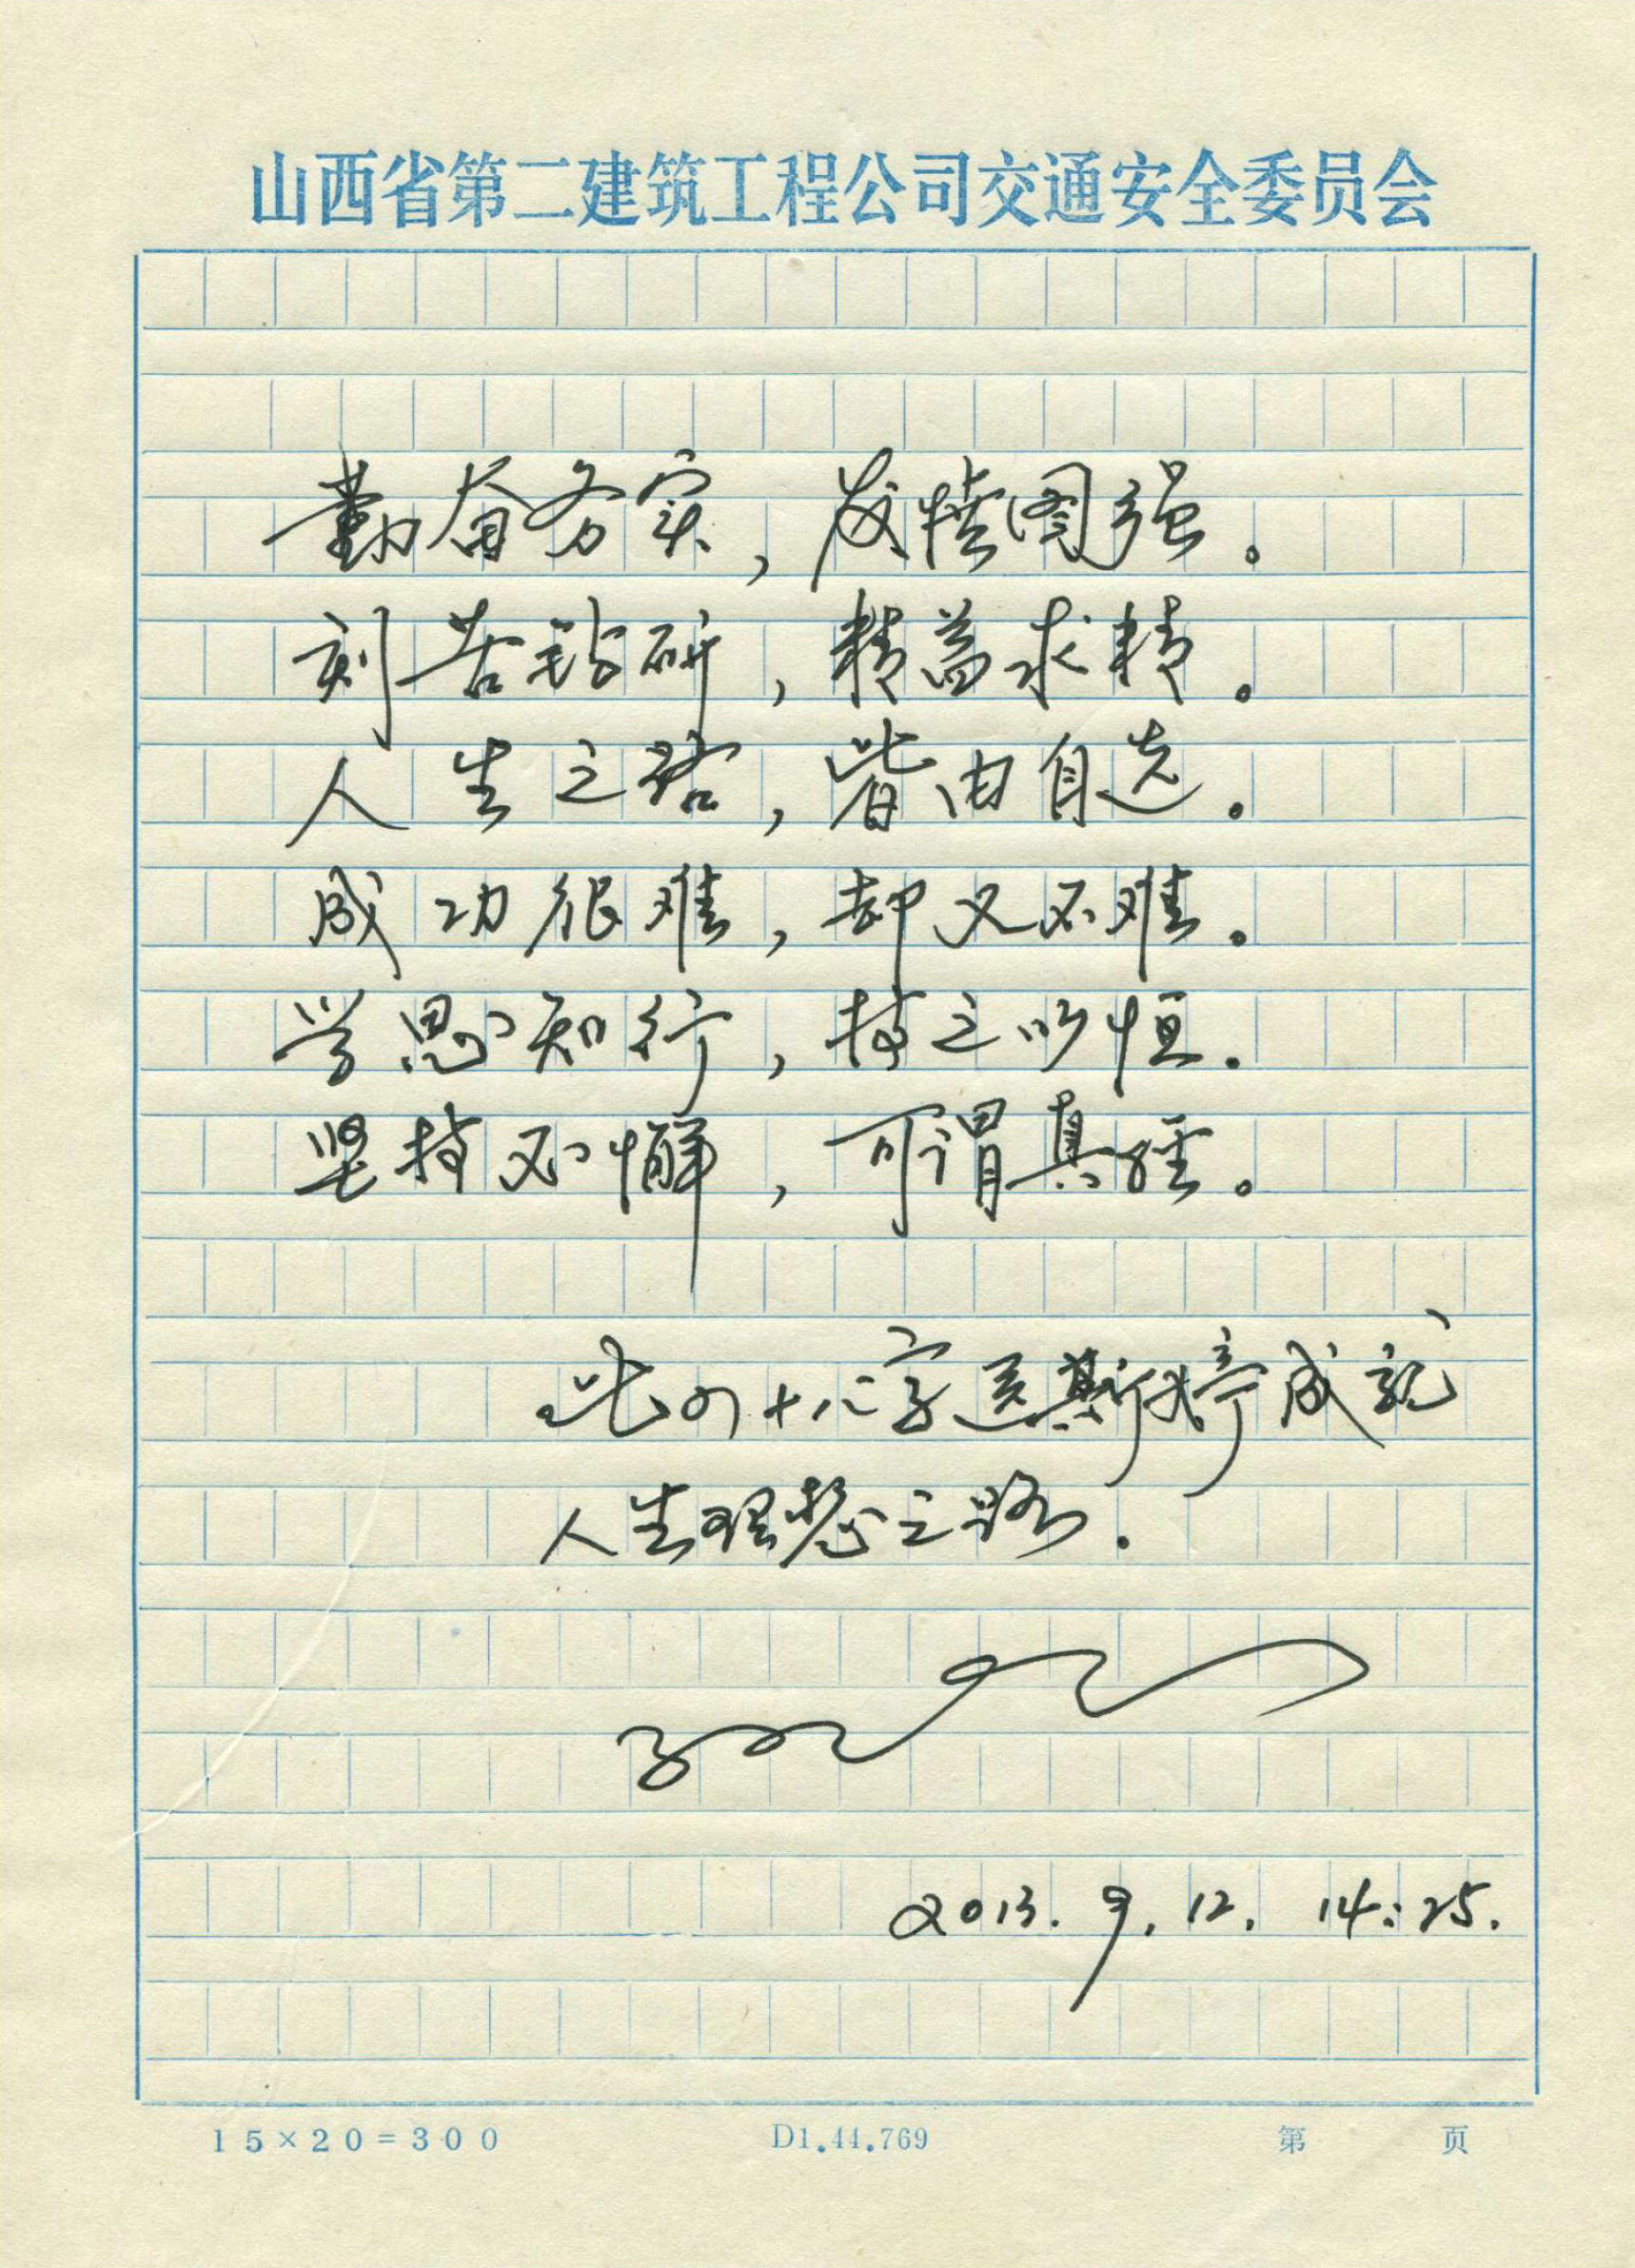 山西省第二建筑工程公司交通安全委员会
勤奋务实，发愤图强。
刻苦钻研，精益求精。
人生之路，皆由自选。
成功很难，却又不难。
学思知行，持之以恒。
坚持不懈，可谓真经。
此四十八字送斯婷成就
人生理想之路.
2013. 9. 12. 14:25.
15×20=300 D1.44.769 第 页